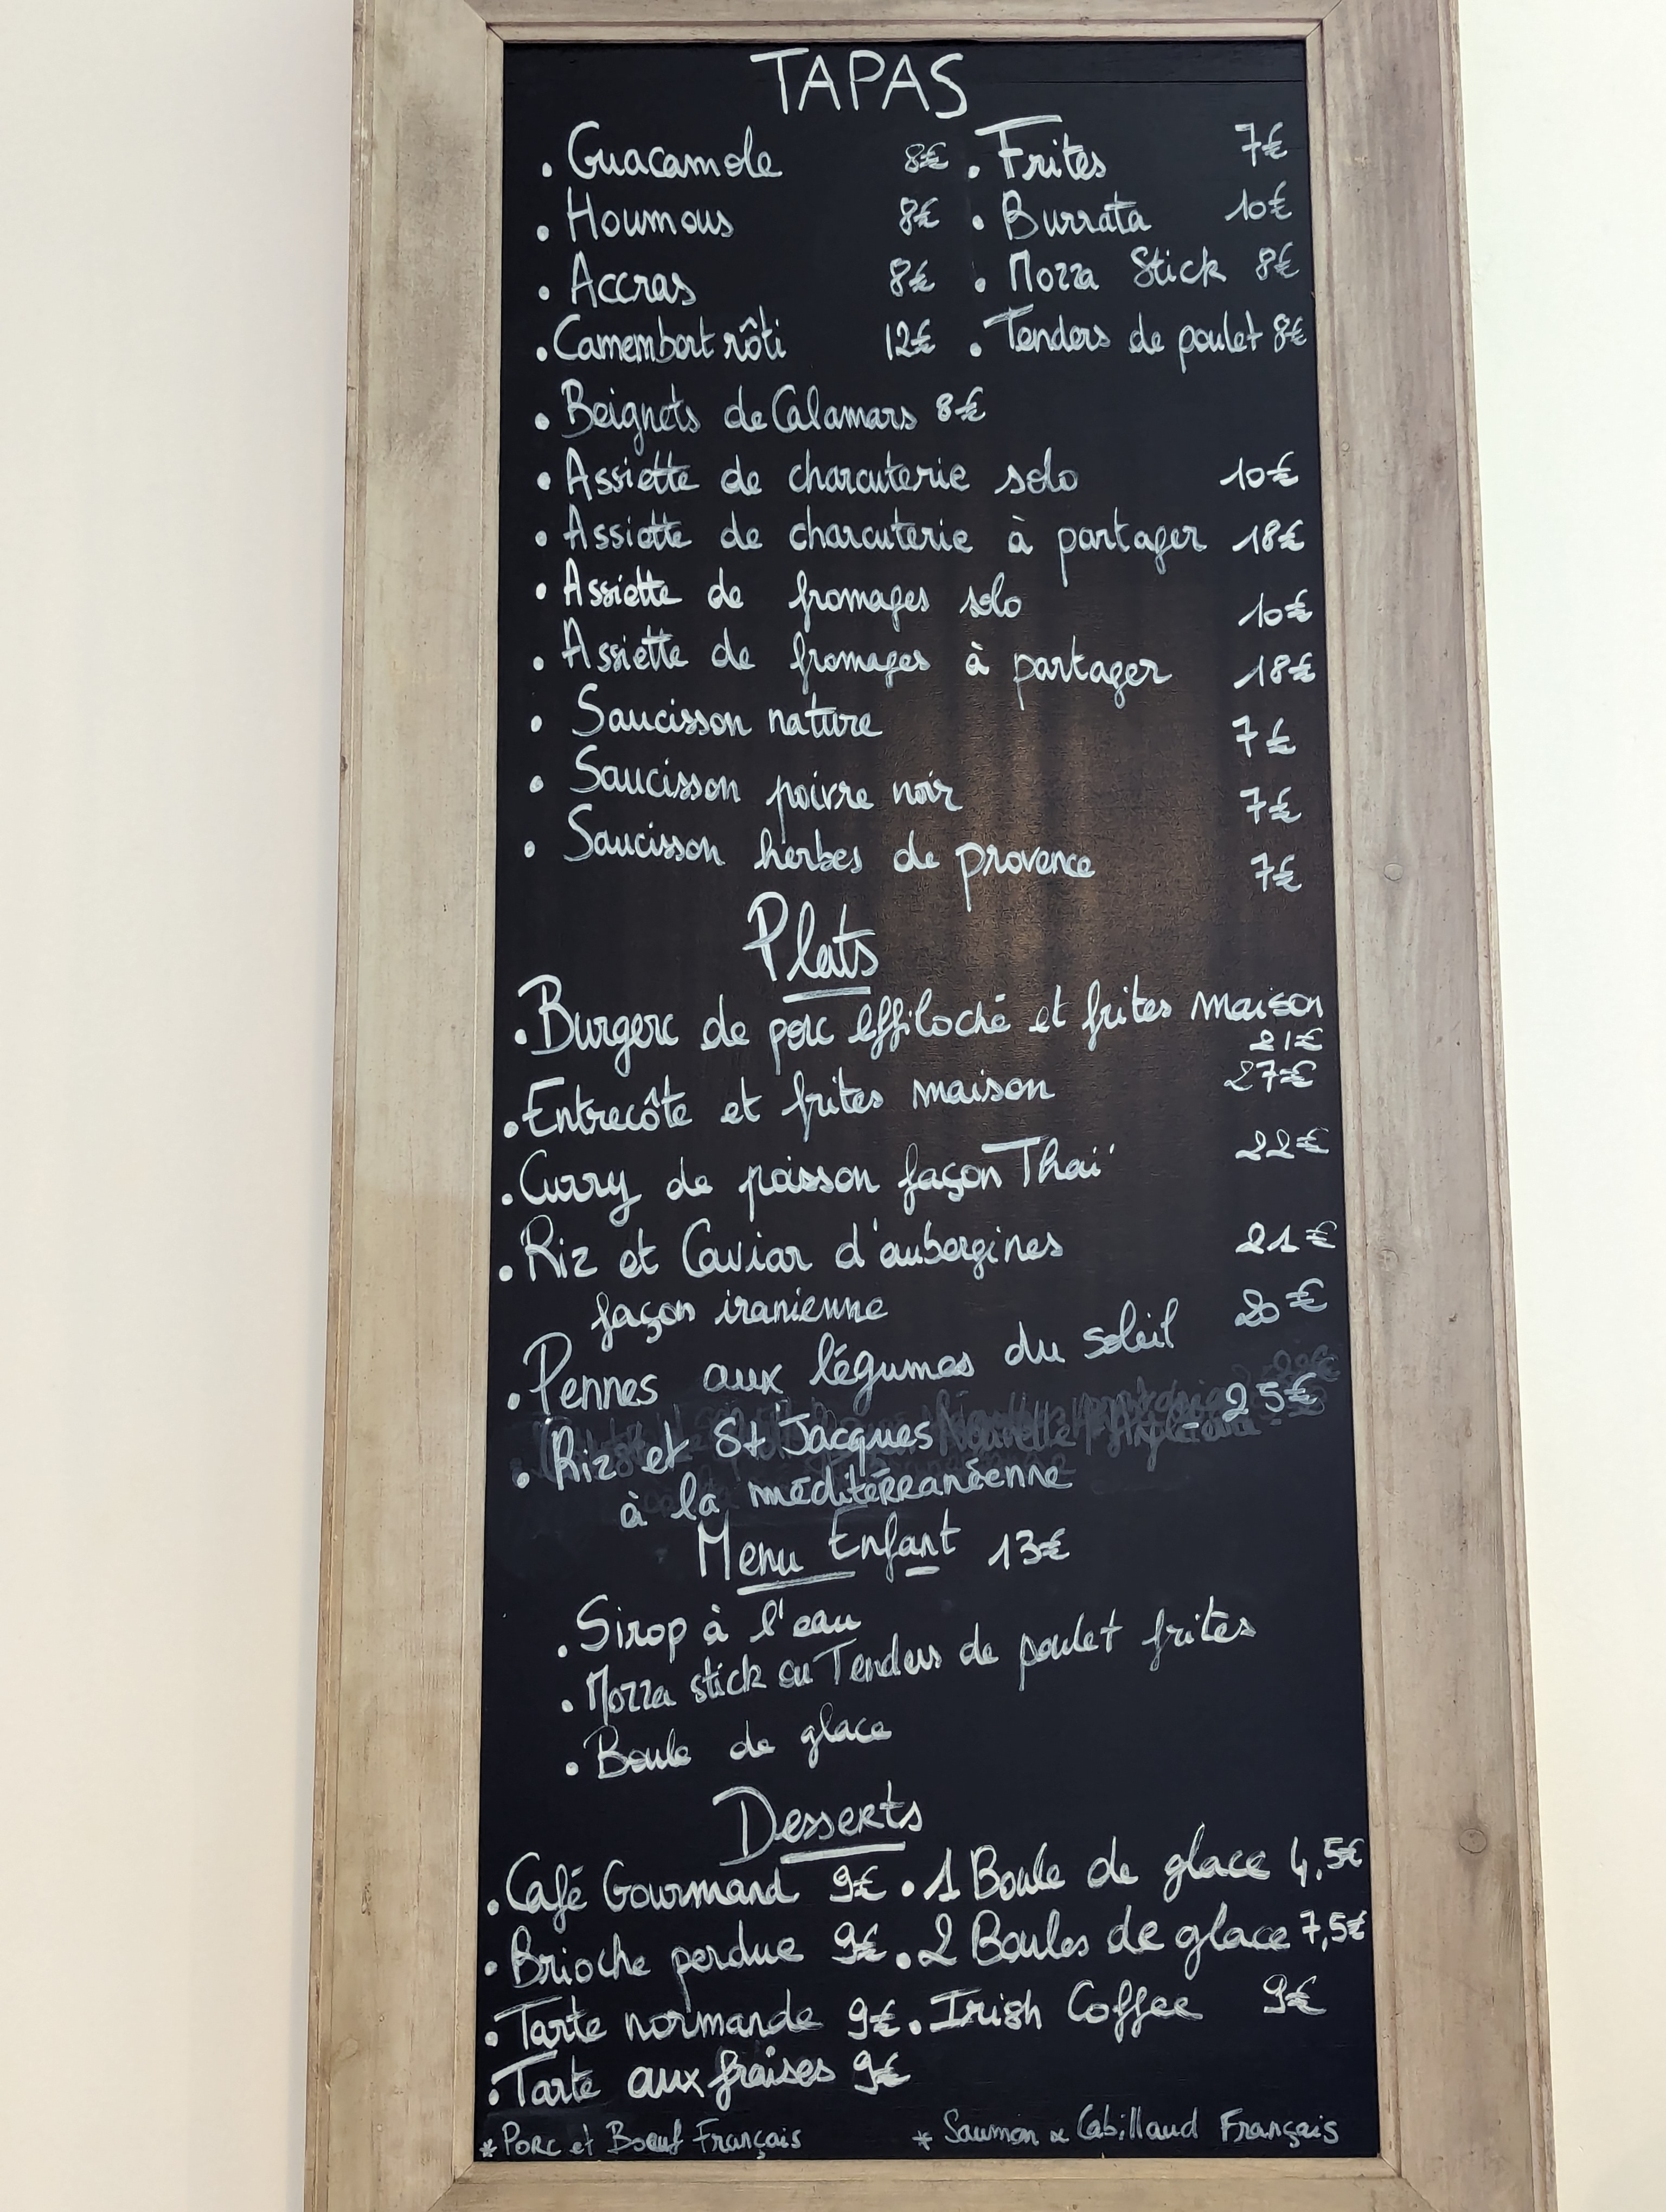 TAPAS
• Guacamole 8€ • Frites 7€
• Houmous 8€ • Burrata 10€
• Accras 8€ • Mozza Stick 8€
• Camembert rôti 12€ • Tenders de poulet 8€
• Beignets de Calamars 8€
• Assiette de charcuterie solo 10€
• Assiette de charcuterie à partager 18€
• Assiette de fromages solo 10€
• Assiette de fromages à partager 18€
• Saucisson nature 7€
• Saucisson poivre noir 7€
• Saucisson herbes de provence 7€
Plats
• Burger de porc effiloché et frites maison
21€
• Entrecôte et frites maison 27€
• Curry de poisson façon Thaï 22€
• Riz et Caviar d'aubergines 21€
façon iranienne
• Pennes aux légumes du soleil 20€
• Riz et St Jacques 25€
à la méditerranéenne
Menu Enfant 13€
• Sirop à l'eau
• Mozza stick ou Tenders de poulet frites
• Boule de glace
Desserts
• Café Gourmand 9€ • 1 Boule de glace 4,5€
• Brioche perdue 9€ • 2 Boules de glace 7,5€
• Tarte normande 9€ • Irish Coffee 9€
• Tarte aux fraises 9€
* Porc et Boeuf Français * Saumon & Cabillaud Français